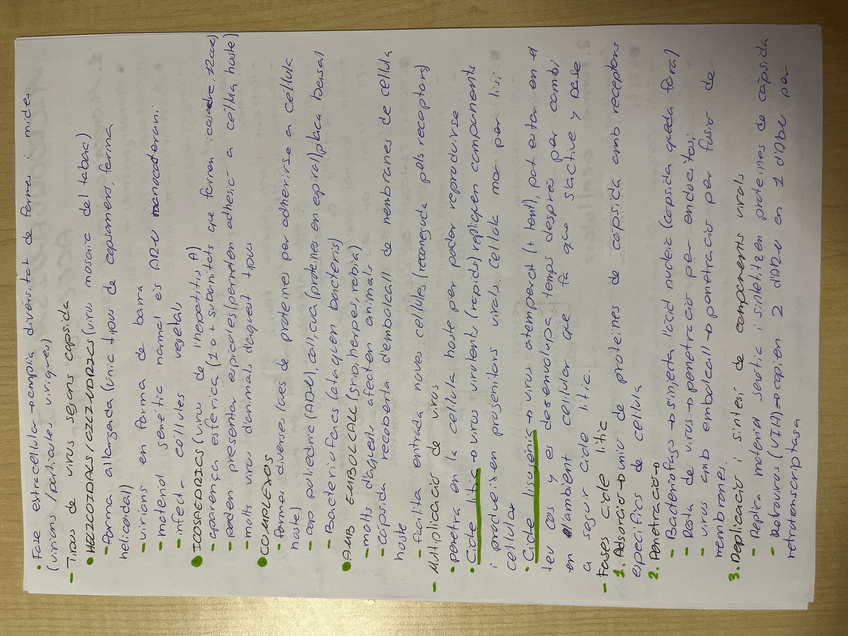 • Fase extracellular → àmplia diversitat de formes i mides
(virions/particules víriques)
- Tipus de virus segons capsida
• HELICOIDALS/CILINDRICS (virus mosaic del tabac)
- Forma allargada (únic tipus de capsòmers, forma
helicoidal)
- virions en forma de barra
- material genètic normal és ARN monocatenari
- infecta cèl·lules vegetals
• ICOSAEDRICS (virus de l'hepatitis A)
- aparença esfèrica (1 o + subunitats que formen 20 cares)
- poden presentar espícules (permeten adhesió a cèl·lula hoste)
- molts virus d'animals d'aquest tipus
• COMPLEXOS
- formes diverses de proteïnes per adherirse a cèl·lula
hoste)
- cap polièdric (ADN), coll, cua (proteines en espiral), placa basal
- Bacteriofags (ataquen bacteris)
• AMB EMBOLCALL (grip, herpes, ràbia)
- molts d'aquests afecten animals
- càpsida recoberta d'embolcall de membranes de cèl·lula
hoste
- facilita entrada noves cèl·lules (reconeguda pels receptors)
- Multiplicació de virus
• penetra en la cèl·lula hoste per poder reproduirse
• Cicle lític → virus virulents (ràpids) repliquen components
i produeixen progenitors virals, cèl·lula mor per lisi
cel·lular
• Cicle lisogènic → virus atemperat (+ lent), pot estar en el
teu cos y es desenvolupa temps després per canvi
en l'ambient cel·lular que fa que s'active y pase
a seguir cicle lític.
- Fases cicle lític
1. Adsorció → unió de proteïnes de càpsida amb receptors
específics de cèl·lula
2. Penetració →
- Bacteriofags → s'injecta l'àcid nucleic (capsida queda fora)
- Resta de virus → penetració per endocitosi
- virus amb embolcall → penetració per fusió de
membranes.
3. Replicació i síntesi de components virals
- Replica material genètic i sintetitzen proteïnes de càpsida
- Retrovirus (VIH) → copien 2 d'ARN en 1 d'ADN per
retrotranscriptasa